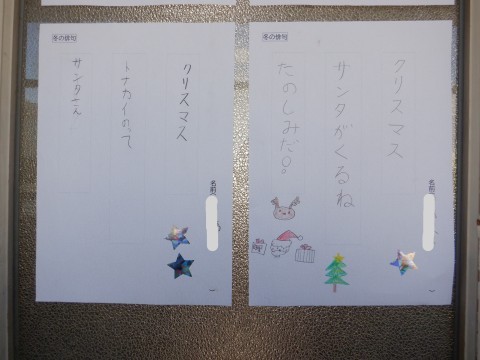 冬の俳句
クリスマス
トナカイのって
サンタさん
名前
冬の俳句
クリスマス
サンタがくるね
たのしみだ!
名前